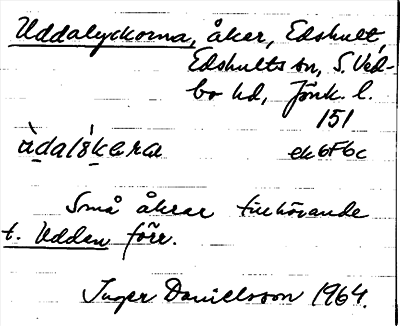 Uddalyckorna, åker, Edshult,
Edshults sn, S. Ved-
bo hd, Jönk. l.
151
ek 6F6c
Små åkrar tillhörande
t. Uddan förr.
Inger Danielsson 1964.